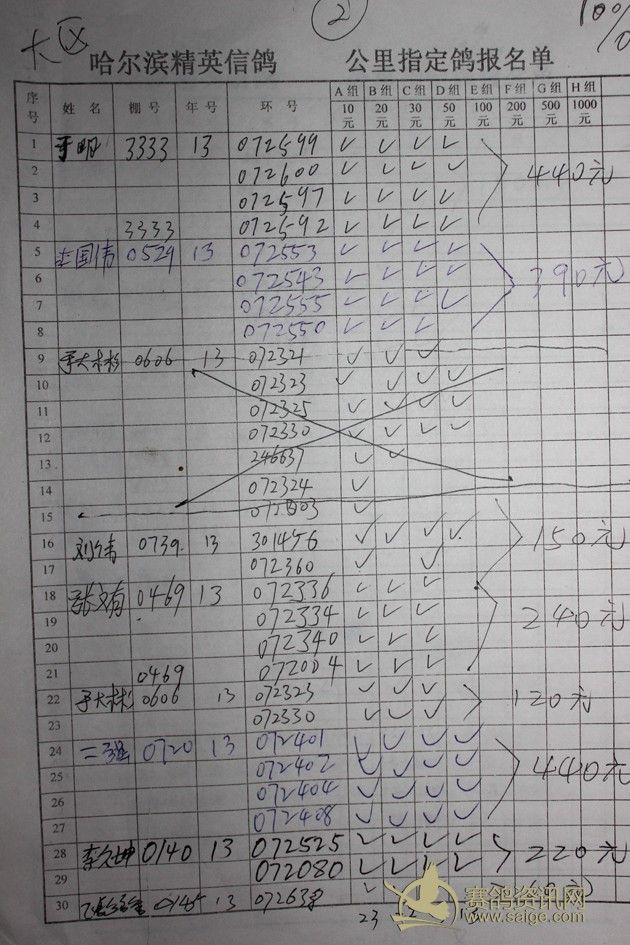 ② 10%
大区
哈尔滨精英信鸽 公里指定鸽报名单
序号 姓名 棚号 年号 环号 A组10元 B组20元 C组30元 D组50元 E组100元 F组200元 G组500元 H组1000元
1 于明 3333 13 072599 ✓ ✓ ✓ ✓
2 072600 ✓ ✓ ✓ ✓ 440元
3 072597 ✓ ✓ ✓ ✓
4 3333 072592 ✓ ✓ ✓ ✓
5 国伟 0529 13 072553 ✓ ✓ ✓ ✓
6 072543 ✓ ✓ ✓ ✓ 390元
7 072555 ✓ ✓ ✓ ✓
8 072550 ✓ ✓ ✓
9 于大彬 0606 13 072321 ✓ ✓ ✓
10 072323 ✓ ✓ ✓ ✓
11 072325 ✓ ✓ ✓ ✓
12 072330 ✓ ✓ ✓ ✓
13 246637 ✓ ✓
14 072324 ✓
15 ✓
16 刘伟 0739 13 301456 ✓ ✓ ✓ ✓ 150元
17 072360 ✓ ✓
18 张文有 0469 13 072336 ✓ ✓ ✓
19 072334 ✓ ✓ ✓ 240元
20 072340 ✓ ✓ ✓
21 0469 072004 ✓ ✓ ✓
22 于大彬 0606 13 072323 ✓ ✓ ✓ 120元
23 072330 ✓ ✓ ✓
24 0720 13 072401 ✓ ✓ ✓ ✓
25 072402 ✓ ✓ ✓ ✓ 440元
26 072404 ✓ ✓ ✓ ✓
27 072408 ✓ ✓ ✓ ✓
28 李久坤 0140 13 072525 ✓ ✓ ✓ ✓ 220元
29 072080 ✓ ✓ ✓ ✓
30 0145 13 ✓
23
赛鸽资讯网
www.saige.com